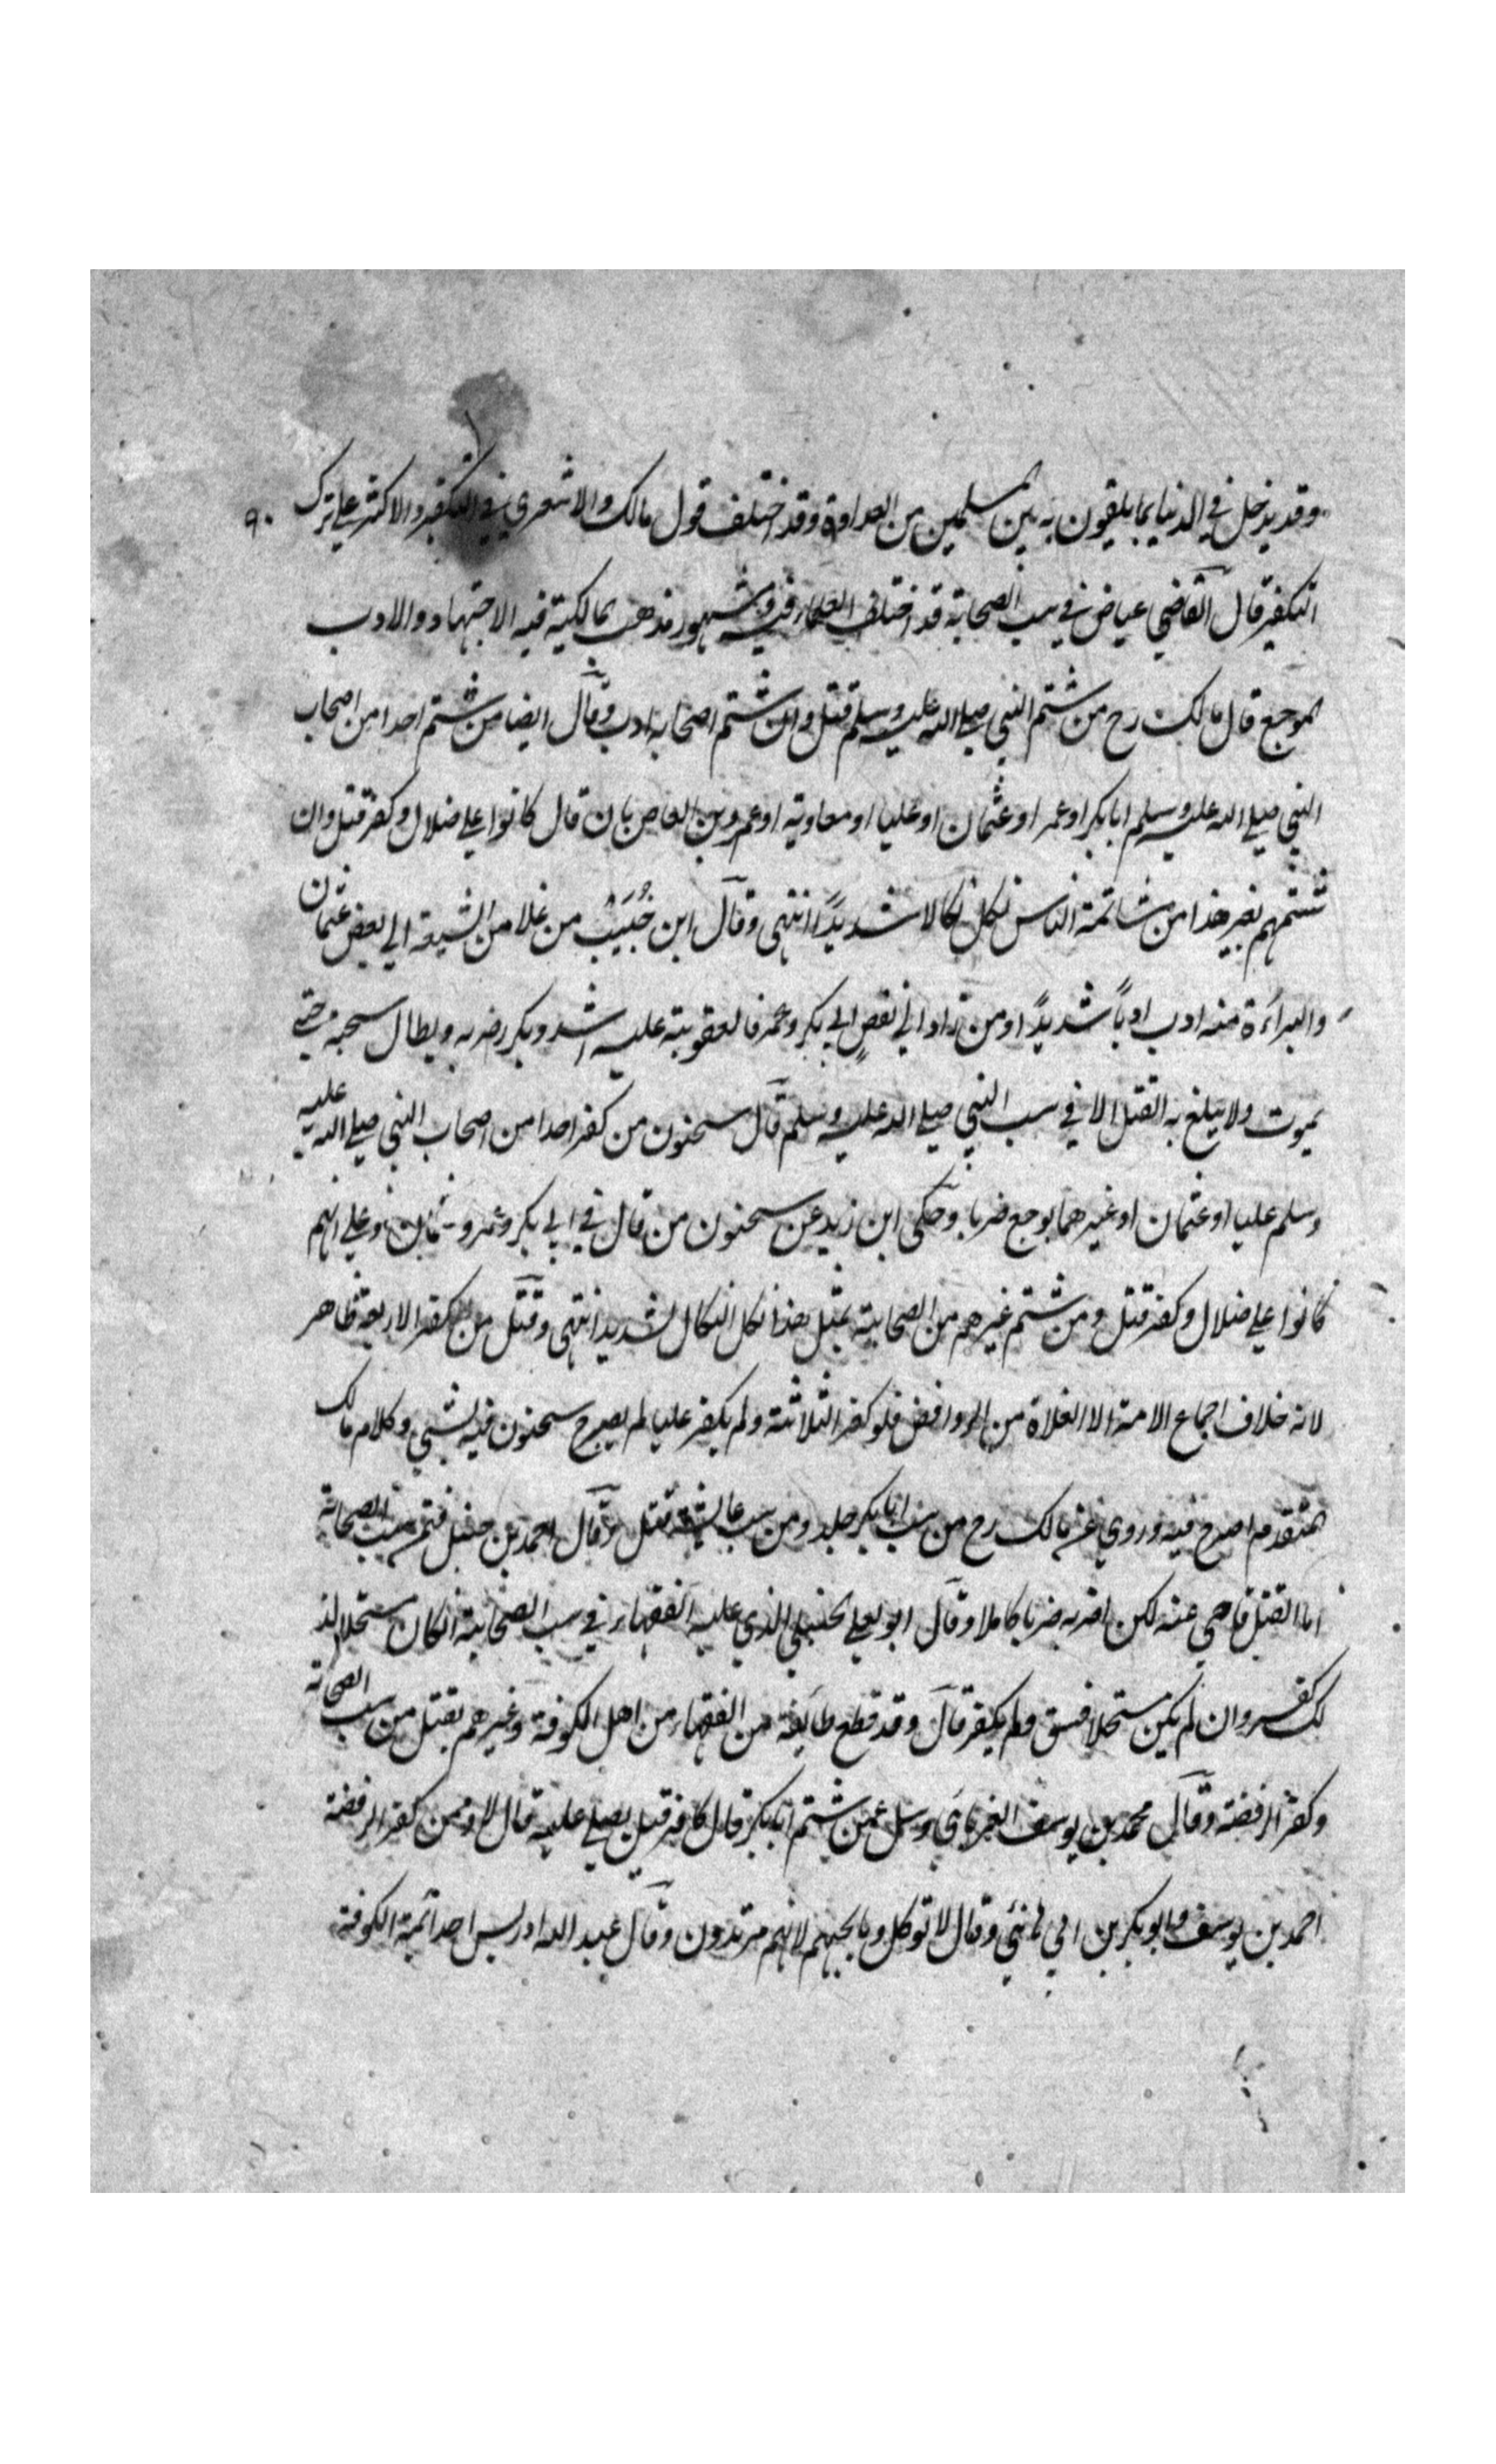 وقد يدخل في الدنيا بما يلقون به بين المسلمين من العداوة وقد اختلف قول مالك والاشعري في التكفير والاكثر على ترك ٩٠
التكفير قال القاضي عياض في سب الصحابة قد اختلف العلماء فيه ومشهور مذهب المالكية فيه الاجتهاد والادب
الموجع قال مالك رح من شتم النبي صلى الله عليه وسلم قتل وان شتم اصحابه ادب وقال ايضا من شتم احدا من اصحاب
النبي صلى الله عليه وسلم ابا بكر او عمر او عثمان او عليا او معاوية او عمرو بن العاص بان قال كانوا على ضلال وكفر قتل وان
شتمهم بغير هذا من شاتمة الناس نكل نكالا شديدًا انتهى وقال ابن حُبَيَبْ من غلا من الشيعة الى بعض عثمان
والبراءَة منه ادب ادباً شديدًا ومن زاد الى بغضٍ ابي بكر وعمر فالعقوبة عليه اشد ويكرر ضربه ويطال سجنه حتى
يموت ولا يبلغ به القتل الا في سب النبي صلى الله عليه وسلم قال سحنون من كفر احدا من اصحاب النبي صلى الله عليه
وسلم عليا او عثمان او غيرهما يوجع ضربا وحكى ابن زيد عن سحنون من قال في ابي بكر وعمر وعثمان وعلى انهم
كانوا على ضلال وكفر قتل ومن شتم غيرهم من الصحابة بمثل هذا نكل النكال الشديد انتهى وقتل من كفر الاربعة ظاهر
لانه خلاف اجماع الامة الا الغلاة من الروافض فلو كفر الثلاثة ولم يكفر عليا لم يصرح سحنون فيه بشيء وكلام مالك
المتقدم اصرح فيه وروي عن مالك رح من سب ابا بكر جلد ومن سب عائشة قتل وقال احمد بن حنبل فيمن سب الصحابة
اما القتل فاجبن عنه لكن اضربه ضربا كاملا وقال ابو يعلى الحنبلي الذي عليه الفقهاء في سب الصحابة ان كان مستحلا لذ
لك كفر وان لم يكن مستحلا فسق ولم يكفر قال وقد قطع طايفة من الفقهاء من اهل الكوفة وغيرهم بقتل من سب الصحابة
وكفر الرفضة وقال محمد بن يوسف الفريابي وسئل عمن شتم ابا بكر قال كافر قيل يصلى عليه قال لا وممن كفر الرفضة
احمد بن يوسف وابو بكر بن هاني وقال لا توكل ذبايحهم لانهم مرتدون وقال عبد الله ادريس احد ائمة الكوفة